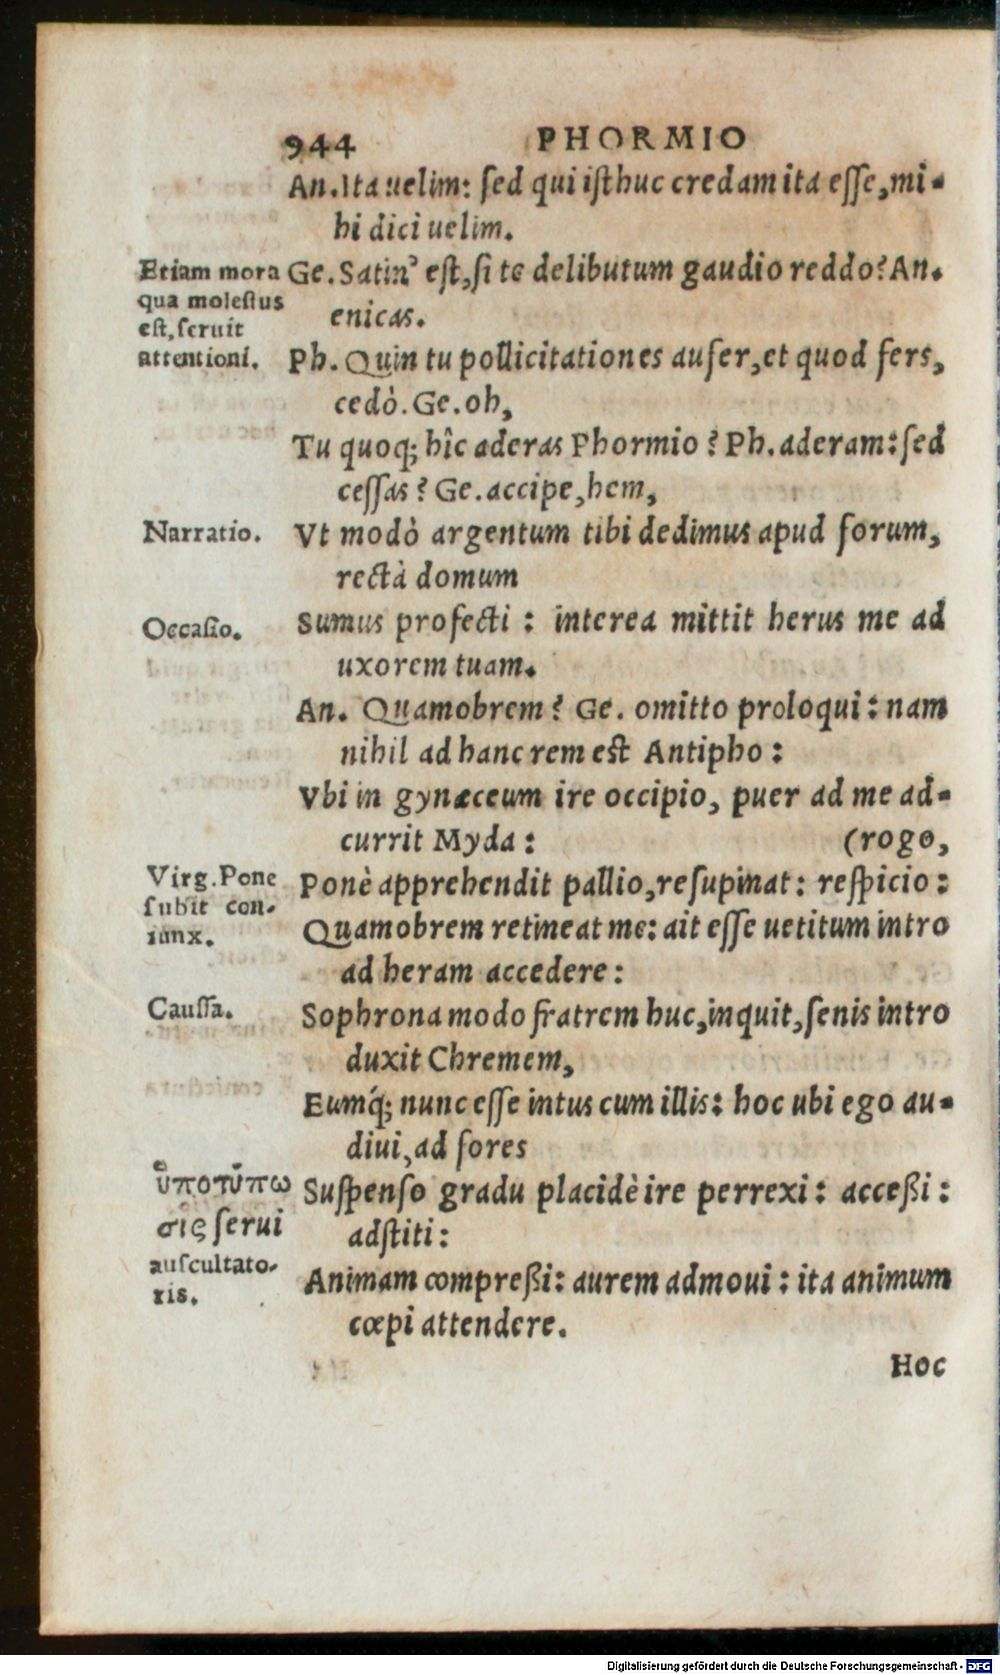 944 PHORMIO
An. Ita uelim: sed qui isthuc credam ita esse, mi-
hi dici uelim.
Etiam mora
qua molestus
est, seruit
attentioni.
Ge. Satin' est, si te delibutum gaudio reddo? An.
enicas.
Ph. Quin tu pollicitationes aufer, et quod fers,
cedò. Ge. oh,
Tu quoq; hîc aderas Phormio? Ph. aderam: sed
cessas? Ge. accipe, hem,
Narratio.
Vt modò argentum tibi dedimus apud forum,
rectà domum
Occasio.
Sumus profecti: interea mittit herus me ad
uxorem tuam.
An. Quamobrem? Ge. omitto proloqui: nam
nihil ad hanc rem est Antipho:
Vbi in gynæceum ire occipio, puer ad me ad-
currit Myda: (rogo,
Virg. Pone
subit con-
iunx.
Ponè apprehendit pallio, resupinat: respicio:
Quamobrem retineat me: ait esse uetitum intro
ad heram accedere:
Caussa.
Sophrona modo fratrem huc, inquit, senis intro
duxit Chremem,
Eumq́; nunc esse intus cum illis: hoc ubi ego au-
diui, ad fores
ὑποτύπω
σις serui
auscultato-
ris.
Suspenso gradu placidè ire perrexi: acceßi:
adstiti:
Animam compreßi: aurem admoui: ita animum
cœpi attendere.
Hoc
Digitalisierung gefördert durch die Deutsche Forschungsgemeinschaft - DFG